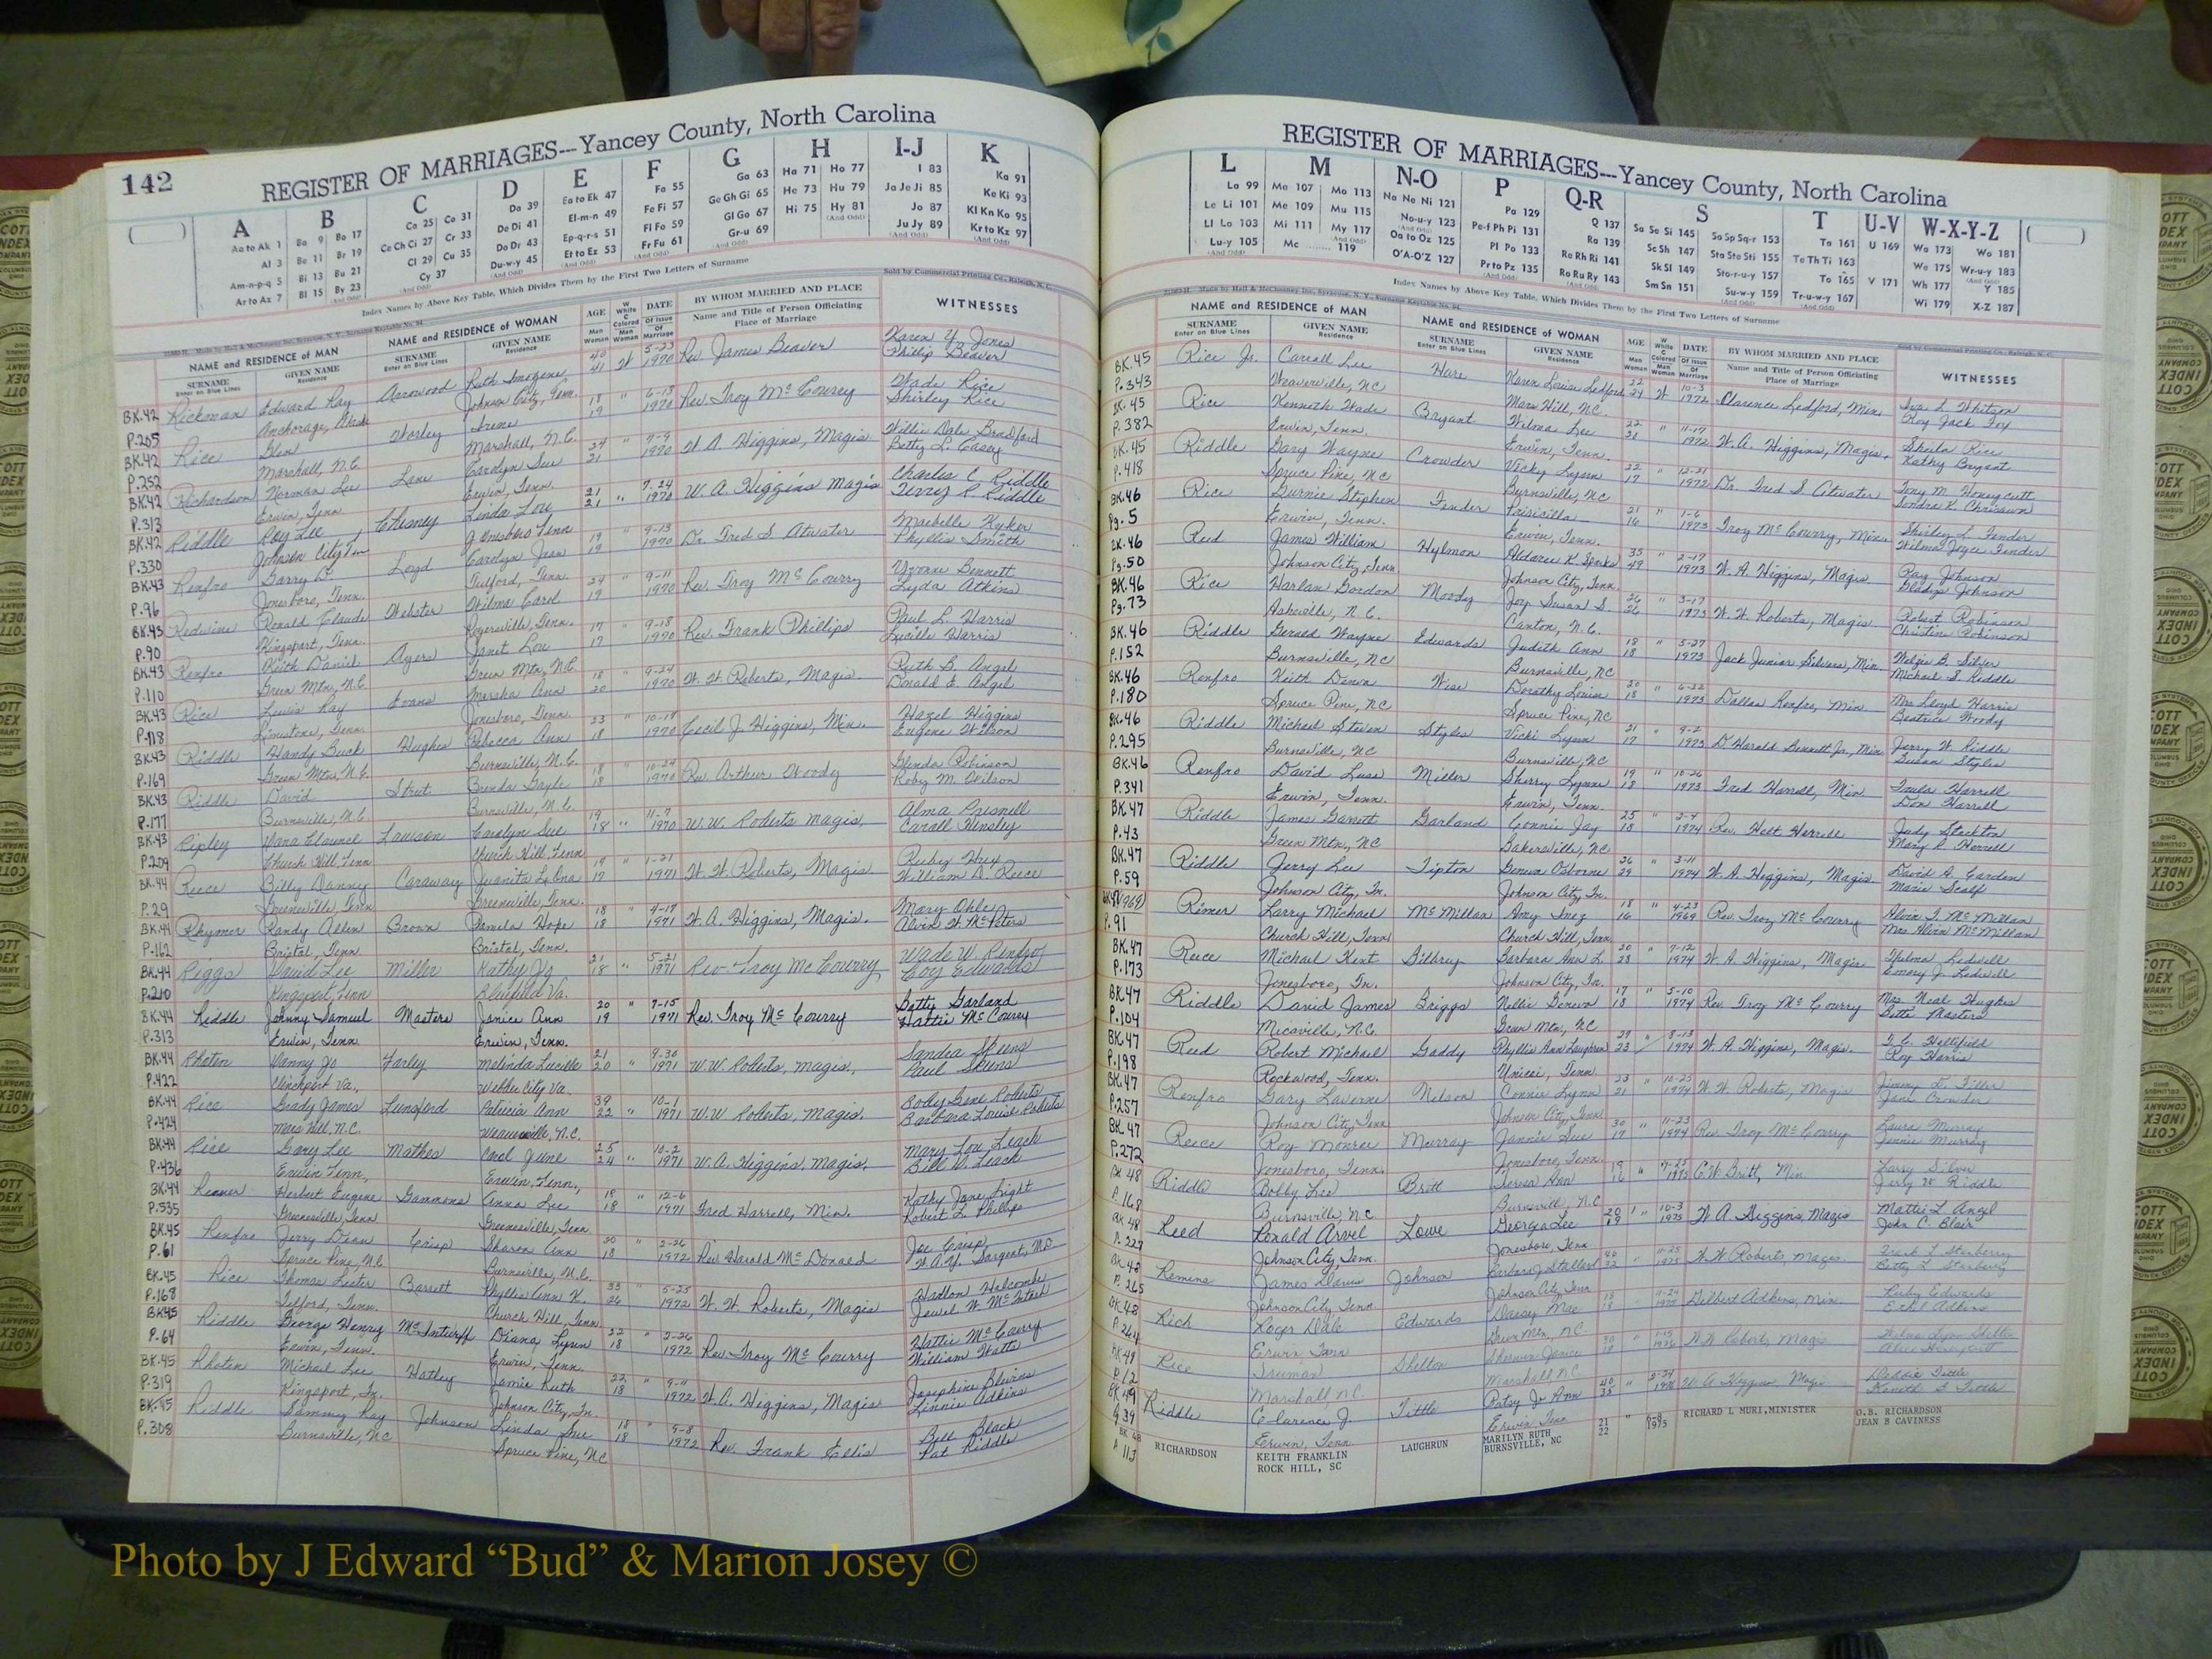 142
REGISTER OF MARRIAGES---Yancey County, North Carolina
A B C D E F G H I-J K
Aa to Ak 1
Al 3
Am-n-p-q 5
Ar to Az 7
Ba 9 Bo 17
Be 11 Br 19
Bi 13 Bu 21
Bl 15 By 23
Ca 25 Co 31
Ce Ch Ci 27 Cr 33
Cl 29 Cu 35
Cy 37
Da 39
De Di 41
Do Dr 43
Du-w-y 45
Ea to Ek 47
El-m-n 49
Ep-q-r-s 51
Et to Ez 53
Fa 55
Fe Fi 57
Fl Fo 59
Fr Fu 61
Ga 63
Ge Gh Gi 65
Gl Go 67
Gr-u 69
Ha 71 Ho 77
He 73 Hu 79
Hi 75 Hy 81
I 83
Ja Je Ji 85
Jo 87
Ju Jy 89
Ka 91
Ke Ki 93
Kl Kn Ko 95
Kr to Kz 97
Index Names by Above Key Table, Which Divides Them by the First Two Letters of Surname
Sold by Commercial Printing Co., Raleigh, N. C.
NAME and RESIDENCE OF MAN
SURNAME Enter on Blue Lines
GIVEN NAME Residence
NAME and RESIDENCE OF WOMAN
SURNAME Enter on Blue Lines
GIVEN NAME Residence
AGE Man Woman
W White C Colored Man Woman
DATE Of Issue Of Marriage
BY WHOM MARRIED AND PLACE
Name and Title of Person Officiating
Place of Marriage
WITNESSES
BK.42 Rickman Edward Ray Arrowood Ruth Imogene 40 W 5-23 Rev. James Beaver Karen Y. Jones
P.205 Anchorage, Johnson City, Tenn. 41 1970 Phillip Beaver
BK.42 Rice Glen Worley Irene 18 " 6-13 Rev. Troy McCourry Wade Rice
P.252 Marshall, N.C. Marshall, N.C. 19 1970 Shirley Rice
BK.42 Richardson Norman Lee Lane Carolyn Sue 24 " W. A. Higgins, Magis. Willie Dale Bradford
P.313 Erwin, Tenn. Erwin, Tenn. 21 1970 Betty L. Casey
BK.42 Riddle Roy Lee Chesney Linda Lou 21 " 7-24 W. A. Higgins Magis Charles C. Riddle
P.330 Johnson City Jonesboro Tenn 21 1970 Terry R. Riddle
BK.43 Renfro Garry D. Loyd Carolyn Jean 19 " 9-13 Dr. Fred S. Atwater Maebelle Kyker
P.96 Jonesboro, Tenn. Telford, Tenn. 19 1970 Phyllis Smith
BK.43 Redwine Ronald Claude Webster Wilma Carol 24 " 9-11 Rev. Troy McCourry Yvonne Bennett
P.90 Kingsport, Tenn. Rogersville, Tenn. 19 1970 Lyda Atkins
BK.43 Renfro Keith Daniel Ayers Janet Lou 17 " 9-18 Rev. Frank Phillips Paul L. Harris
P.110 Green Mtn., N.C. Green Mtn., N.C. 17 1970 Lucille Harris
BK.43 Rice Lewis Ray Evans Marsha Ann 18 " 9-24 W. W. Roberts, Magis. Ruth B. Angel
P.118 Limestone, Tenn. Jonesboro, Tenn. 20 1970 Donald E. Angel
BK.43 Riddle Handy Buck Hughes Rebecca Ann 23 " 10-18 Cecil J. Higgins, Min. Hazel Higgins
P.169 Green Mtn., N.C. Burnsville, N.C. 18 1970 Eugene Wilson
BK.43 Riddle David Street Brenda Gayle 18 " 10-24 Rev. Arthur Woody Glenda Robinson
P.177 Burnsville, N.C. Burnsville, N.C. 18 1970 Roby M. Wilson
BK.43 Ripley Lawson Carolyn Sue 19 11-7 W.W. Roberts Magis. Alma
P.209 Church Hill, Tenn Church Hill, Tenn 18 " 1970 Carall Kinsley
BK.44 Reece Billy Danny Caraway Juanita 19 " 1-21 W. W. Roberts, Magis. Ruby Hux
P.29 Greeneville, Tenn. Greeneville, Tenn. 17 1971 William D. Reece
BK.44 Rhymer Randy Allen Brown Pamela Hope 18 " 4-17 W. A. Higgins, Magis. Mary Ohle
P.162 Bristol, Tenn Bristol, Tenn. 18 1971 Alvin W. McPeters
BK.44 Riggs David Lee Miller Kathy Jo 21 5-21 Rev. Troy McCourry Wade W. Renfro
P.210 Kingsport, Tenn Bluefield Va. 18 " 1971 Coy Edwards
BK.44 Riddle Johnny Samuel Masters Janice Ann 20 " 7-15 Rev. Troy McCourry Betty Garland
P.313 Erwin, Tenn Erwin, Tenn. 19 1971 Hattie McCourry
BK.44 Rhoten Danny Jo Farley Melinda Lucille 21 9-30 W.W. Roberts, magis., Sandra Skeens
P.422 Clinchport Va. Weber City Va. 20 " 1971 Paul Skeens
BK.44 Rice Grady James Lunsford Patricia Ann 39 10-1 W.W. Roberts, Magis. Bobby Gene Roberts
P.424 Mars Hill, N.C. Weaverville, N.C. 22 " 1971 Barbara Louise Roberts
BK.44 Rice Gary Lee Mathes Carol June 25 10-2 W.A. Higgins, Magis. Mary Lou Leach
P.436 Erwin Tenn. Erwin, Tenn. 24 " 1971 Bill D. Leach
BK.44 Herbert Eugene Gammons Anna Lee 18 " 12-6 Fred Harrell, Min. Kathy Jane Light
P.535 Greeneville, Tenn Greeneville, Tenn 18 1971 Robert L. Phillips
BK.45 Renfro Jerry Dean Crisp Sharon Ann 20 " 2-26 Rev. Harold McDonald Joe Crisp
P.61 Spruce Pine, N.C. Burnsville, N.C. 18 1972 W.A.Y. Sargent, M.D.
BK.45 Rice Thomas Lester Barrett Phyllis Ann K. 33 " 5-25 W. W. Roberts, Magis Hadlon Holcombe
P.168 Telford, Tenn. Church Hill, Tenn. 26 1972 Jewel W.
BK.45 Riddle George Henry McInturff Diana Lynn 22 " 2-26 Rev. Troy McCourry Hattie McCourry
P.64 Erwin, Tenn. Erwin, Tenn. 18 1972 William Watts
BK.45 Rhoten Michael Lee Hatley Jamie Ruth 22 " 9-11 W.A. Higgins, Magis Josephine Blevins
P.319 Kingsport, Tn. Johnson City, Tn. 18 1972 Linnie Adkins
BK.45 Riddle Sammy Ray Johnson Linda Sue 18 " 9-8 Rev. Frank Ellis Bill Black
P.308 Burnsville, NC Spruce Pine, NC 18 1972 Pat Riddle
REGISTER OF MARRIAGES---Yancey County, North Carolina
L M N-O P Q-R S T U-V W-X-Y-Z
La 99
Le Li 101
Ll Lo 103
Lu-y 105
Ma 107 Mo 113
Me 109 Mu 115
Mi 111 My 117
Mc 119
Na Ne Ni 121
No-u-y 123
Oa to Oz 125
O'A-O'Z 127
Pa 129
Pe-f Ph Pi 131
Pl Po 133
Pr to Pz 135
Q 137
Ra 139
Re Rh Ri 141
Ro Ru Ry 143
Sa Se Si 145 So Sp Sq-r 153
Sc Sh 147 Sta Ste Sti 155
Sk Sl 149 Sto-r-u-y 157
Sm Sn 151 Su-w-y 159
Ta 161
Te Th Ti 163
To 165
Tr-u-w-y 167
U 169
V 171
Wa 173 Wo 181
We 175 Wr-u-y 183
Wh 177 Y 185
Wi 179 X-Z 187
Index Names by Above Key Table, Which Divides Them by the First Two Letters of Surname
NAME and RESIDENCE OF MAN
SURNAME Enter on Blue Lines
GIVEN NAME Residence
NAME and RESIDENCE OF WOMAN
SURNAME Enter on Blue Lines
GIVEN NAME Residence
AGE Man Woman
W White C Colored Man Woman
DATE Of Issue Of Marriage
BY WHOM MARRIED AND PLACE
Name and Title of Person Officiating
Place of Marriage
WITNESSES
BK.45 Rice Jr. Carroll Lee Hare Karen Louise Ledford 22 W 10-3 Clarence Ledford, Min. Iva L. Whitson
P.343 Weaverville, NC Mars Hill, NC 24 1972 Roy Jack Fox
BK.45 Rice Kenneth Wade Bryant Wilma Lee 22 " 11-17 W.A. Higgins, Magis. Sheila Rice
P.382 Erwin, Tenn. Erwin, Tenn. 21 1972 Kathy Bryant
BK.45 Riddle Gary Wayne Crowder Vicky Lynn 22 " 12-21 Dr. Fred S. Atwater Tony M. Honeycutt
P.418 Spruce Pine, NC Burnsville, NC 17 1972 Sondra K.
BK.46 Rice Burnie Stephen Fender Prisicilla 21 " 1-6 Troy McCourry, Min. Shirley L. Fender
Pg.5 Erwin, Tenn. Erwin, Tenn. 16 1973 Wilma Joyce Fender
BK.46 Reed James William Hylmon K. Sparks 35 " 2-17 W. A. Higgins, Magis Ray Johnson
Pg.50 Johnson City, Tenn Johnson City, Tenn. 49 1973 Gladys Johnson
BK.46 Rice Harlan Gordon Moody Joy Susan S. 26 " 3-17 W. W. Roberts, Magis. Robert Robinson
Pg.73 Asheville, N.C. Canton, N.C. 26 1973 Christine Robinson
BK.46 Riddle Gerald Wayne Edwards Judith Ann 18 " 5-27 Jack Junior Silvers, Min. B. Silver
P.152 Burnsville, NC Burnsville, NC 18 1973 Michael S. Riddle
BK.46 Renfro Keith Wise Dorothy Louise 20 " 6-22 Dallas Renfro, Min. Mrs Lloyd Harris
P.180 Spruce Pine, NC Spruce Pine, NC 18 1973 Beatrice Woody
BK.46 Riddle Michael Steven Styles Vicki Lynn 21 " 9-2 D. Harold Bennett Jr., Min Jerry W. Riddle
P.295 Burnsville, NC Burnsville, NC 17 1973 Susan Styles
BK.46 Renfro David Luse Miller Sherry Lynne 19 " 10-26 Fred Harrell, Min. Trula Harrell
P.341 Erwin, Tenn. Erwin, Tenn. 18 1973 Don Harrell
BK.47 Riddle James Garrett Garland Connie Jay 25 " 2-4 Rev. Holt Harrell Judy Stockton
P.43 Green Mtn., NC Bakersville, NC 18 1974 Mary P. Harrell
BK.47 Riddle Jerry Lee Tipton Geneva Osborne 26 " 3-11 W. A. Higgins, Magis David A. Carden
P.59 Johnson City, Tn. Johnson City, Tn. 29 1974 Marie Scalf
(1969) Rimer Larry Michael McMillan Amy Inez 18 " 4-23 Rev. Troy McCourry Alvin T. McMillan
P.91 Church Hill, Tenn Church Hill, Tenn. 16 1969 Mrs. Alvin McMillan
BK.47 Reece Michael Kent Dillbry Barbara Ann L. 20 " 7-12 W. A. Higgins, Magis Thelma Ledwell
P.173 Jonesboro, Tn. Johnson City, Tn. 28 1974 Emory J. Ledwell
BK.47 Riddle David James Briggs Nellie Geneva 17 " 5-10 Rev. Troy McCourry Mrs. Neal Hughes
P.104 Micaville, N.C. Green Mtn., NC 18 1974 Bette Masters
BK.47 Reed Robert Michael Gaddy Phyllis Ann Laughren 29 8-13 W. A. Higgins, Magis. G. C. Hollifield
P.198 Rockwood, Tenn. Unicoi, Tenn. 23 1974 Roy Harris
BK.47 Renfro Gary Laverne Nelson Connie Lynn 23 " 10-25 W. W. Roberts, Magis Jimmy D. Tiller
P.257 Johnson City, Tenn Johnson City, Tenn 21 1974 Jane Crowder
BK.47 Reece Roy Monroe Murray Jannie Sue 30 " 11-23 Rev. Troy McCourry Laura Murray
P.272 Jonesboro, Tenn. Jonesboro, Tenn. 17 1974 Jennie Murray
BK 48 Riddle Bobby Lee Britt Teresa Ann 19 " 7-25 C.W. Britt, Min. Larry Silver
P.168 Burnsville, N.C. Burnsvill, N.C 16 1975 Riddle
BK 48 Reed Ronald Arvel Lowe Georga Lee 20 " 10-3 W A Higgins, Magis Mattie L Angel
P.227 Johnson City, Tenn. Jonesboro, Tenn 19 1975 John C. Blair
BK 48 Remine James Johnson Barbara J. 11-25 W. W. Roberts, Magis. Frank L Starberry
P.265 Johnson City, Tenn Johnson City, Tenn 1975 Betty L Starberry
BK.48 Rich Roger Dale Edwards Daisy Mae 18 Gilbert Adkins, Min. Ruby Edwards
P.264 Erwin, Tenn Green Mtn., N.C. 18 Adkins
Rice Truman Shelton Janice W W Roberts, Magis
P 12 Marshall N.C. Marshall N.C. 1976 Alice Honeycutt
BK 49 Riddle Clarence J. Tittle Patsy Jo Ann 40 " W A Higgins Magis Tittle
Erwin, Tenn Erwin Tenn 35 1976 Tittle
BK 48 RICHARDSON KEITH FRANKLIN LAUGHRUN MARILYN RUTH 21 " 6-8 RICHARD L MURI, MINISTER O.B. RICHARDSON
P 113 ROCK HILL, SC BURNSVILLE, NC 22 1975 JEAN B CAVINESS
Photo by J Edward “Bud” & Marion Josey ©